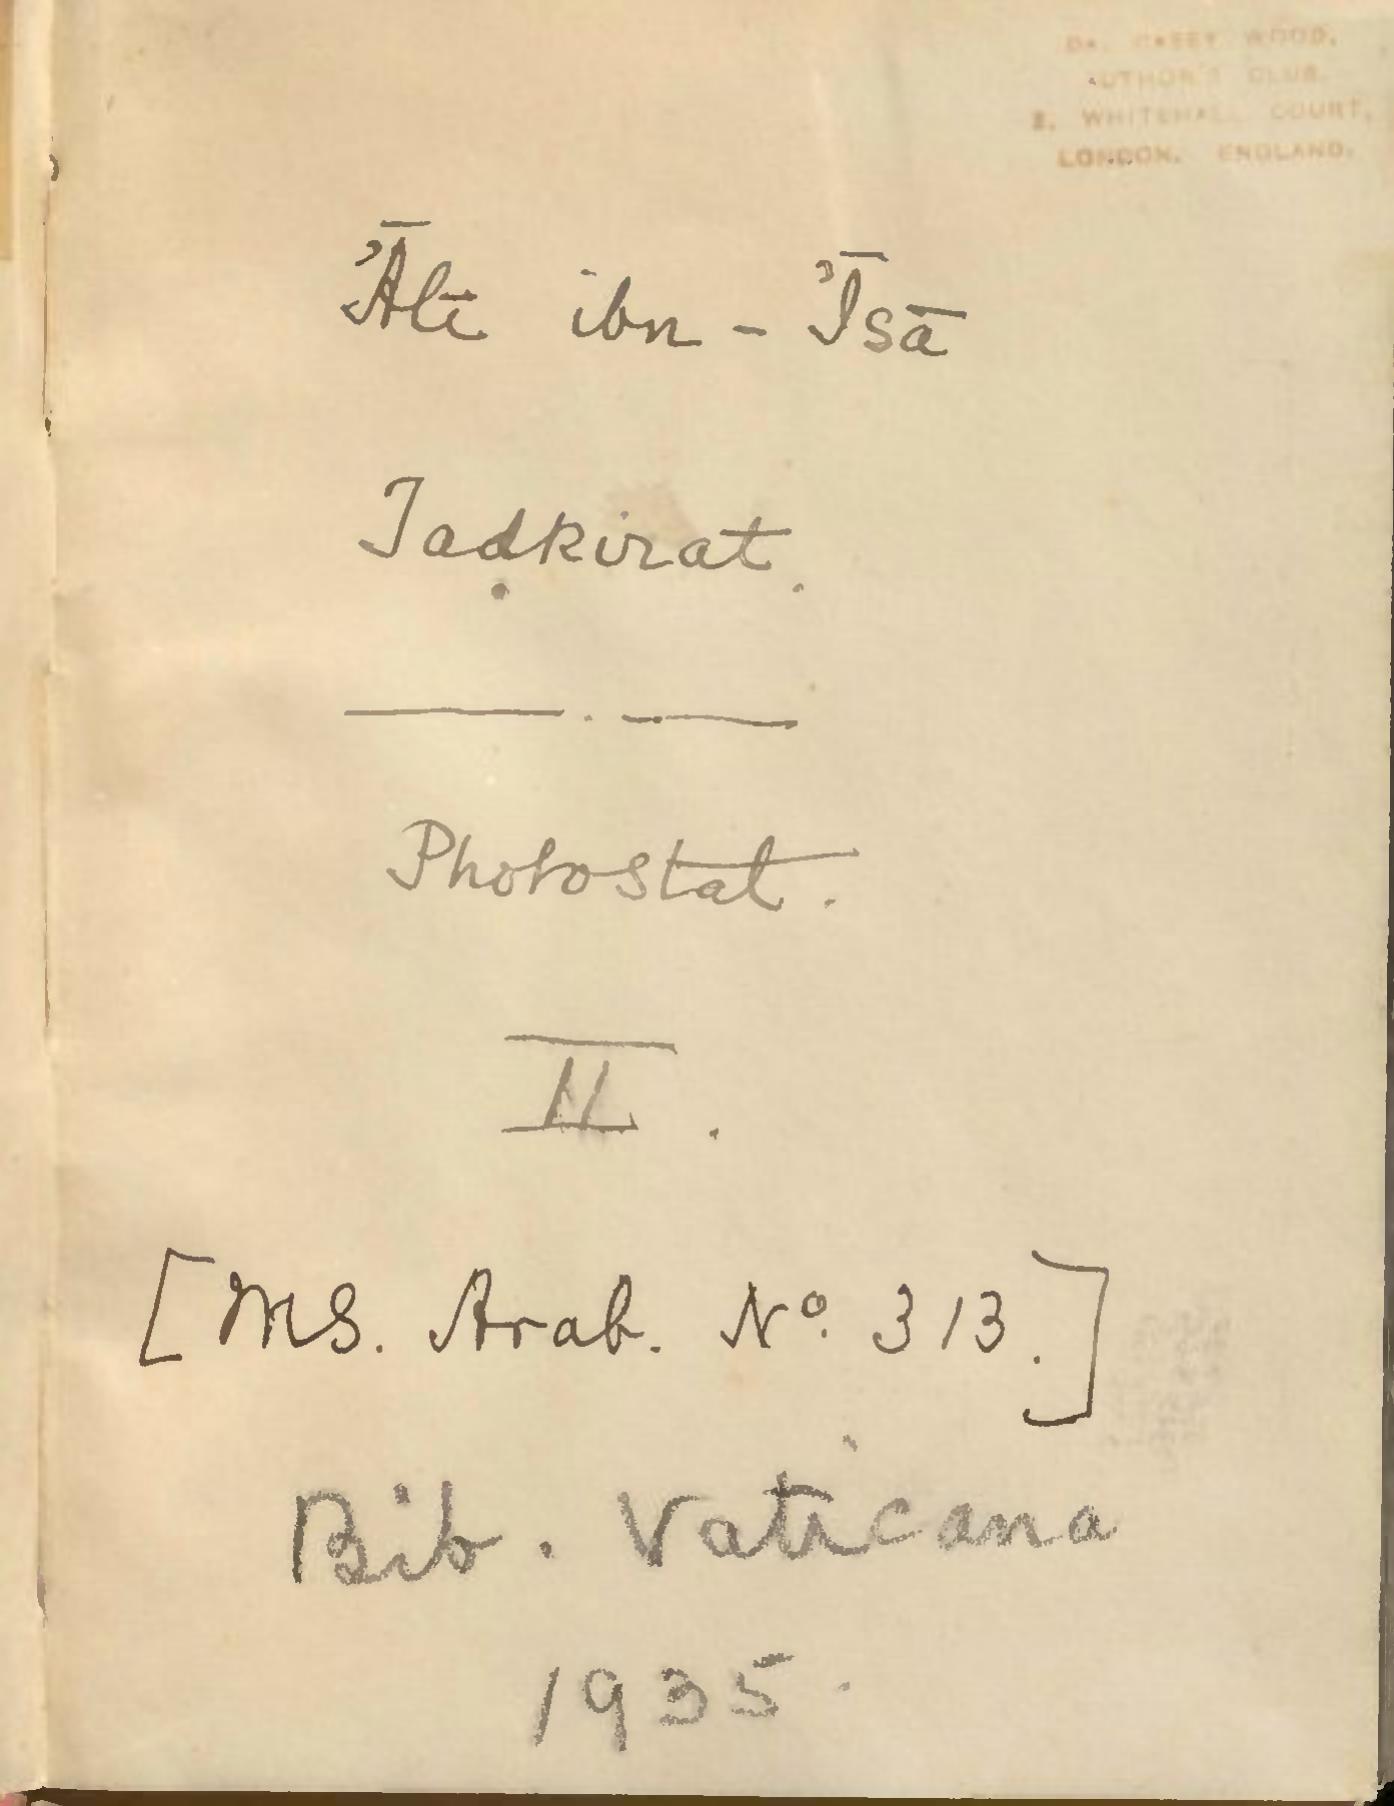 DR. CASEY WOOD,
AUTHOR'S CLUB,
2, WHITEHALL COURT,
LONDON. ENGLAND.
’Ālī ibn - ’Īsā
Taḍkirat.
Photostat.
II.
[MS. Arab. Nº. 313.]
Bib. Vaticana
1935.